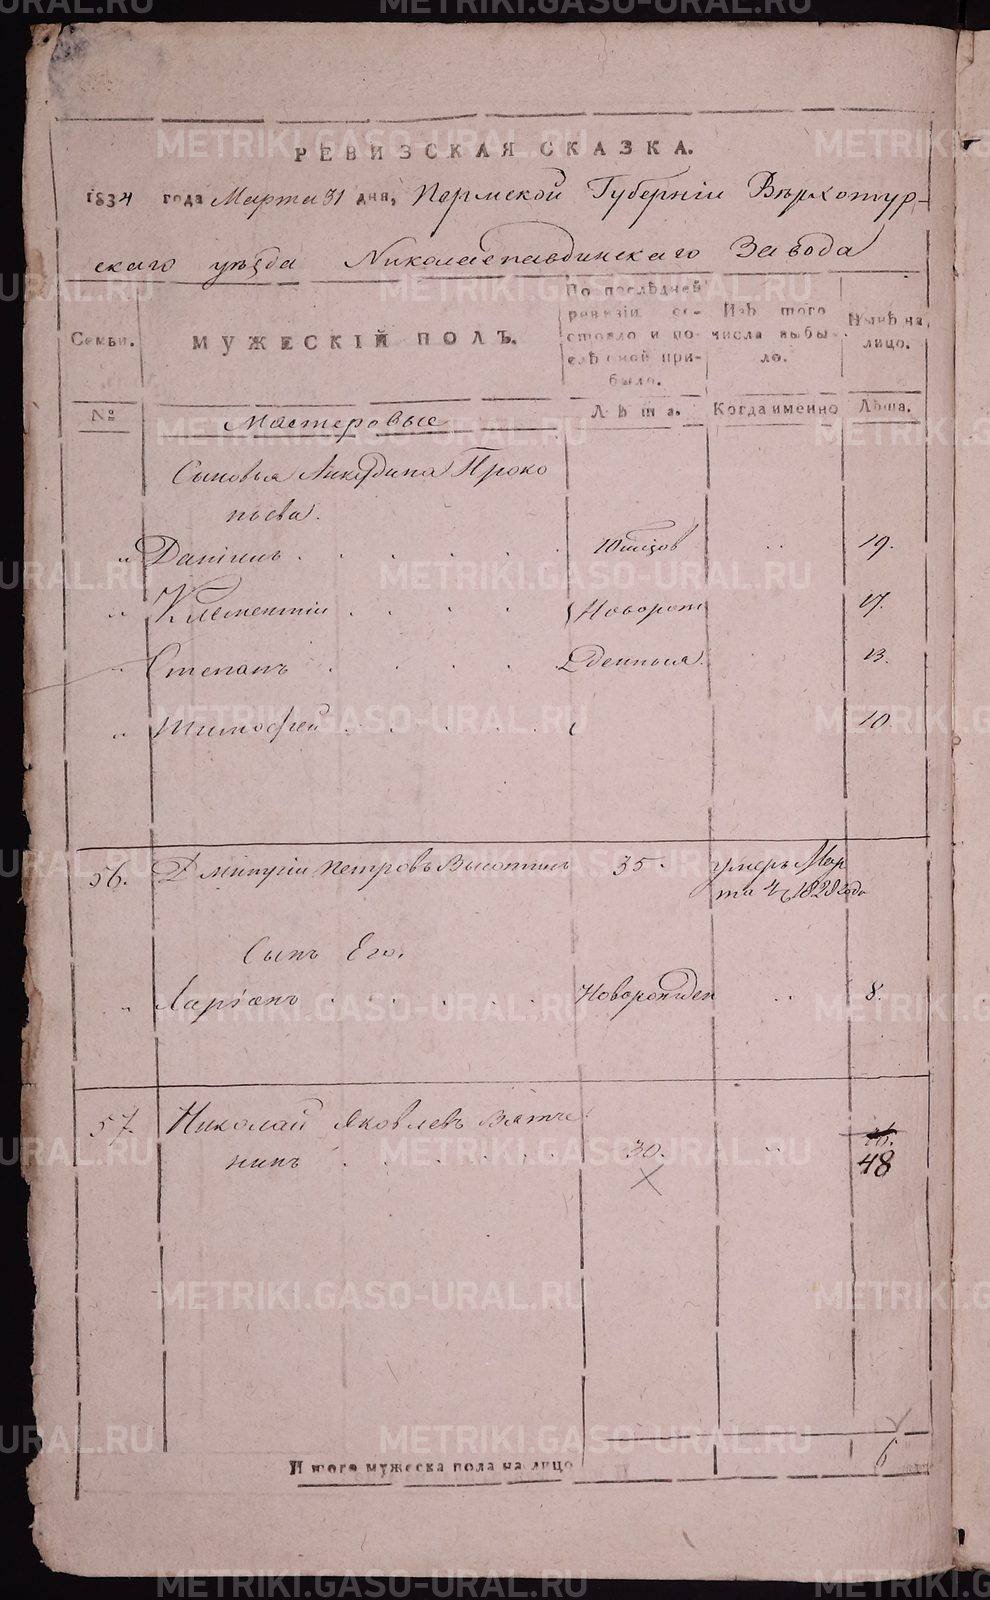 РЕВИЗСКАЯ СКАЗКА.
1834 года Марта 31 дня, Пермской Губернiи Верхотур-
скаго уезда Николаепавдинскаго Завода
Семьи.
МУЖЕСКIЙ ПОЛЪ.
По последней ревизiи состояло и после оной прибыло.
Изъ того числа выбыло.
Ныне на лицо.
№
Мастеровые
Лета.
Когда именно
Лета.
Сыновья Проко
пьева.
" Данiилъ 19.
" Клементiй Новорож 17.
" Степанъ денныя. 13.
" Тимофей 10.
56. Дмитрiй Петровъ 35. умеръ Мар
та 1828 года
Сынъ Его.
" Ларiонъ Новорожден 8.
57. Николай Яковлевъ Вятче
нинъ 30. 48
Итого мужеска пола на лицо 6
METRIKI.GASO-URAL.RU